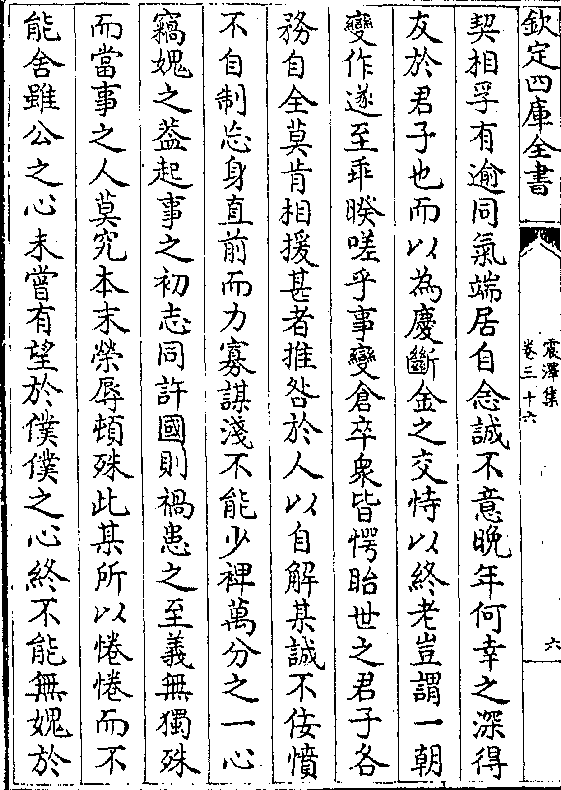 欽定四庫全書
震澤集
卷三十六
六
契相孚有逾同氣端居自念誠不意晚年何幸之深得
友於君子也而以為慶斷金之交恃以終老豈謂一朝
變作遂至乖暌嗟乎事變倉卒衆皆愕眙世之君子各
務自全莫肯相援甚者推咎於人以自解某誠不佞憤
不自制忘身直前而力寡謀淺不能少裨萬分之一心
竊媿之葢起事之初志同許國則禍患之至義無獨殊
而當事之人莫究本末榮辱頓殊此某所以惓惓而不
能舍雖公之心未嘗有望於僕僕之心終不能無媿於